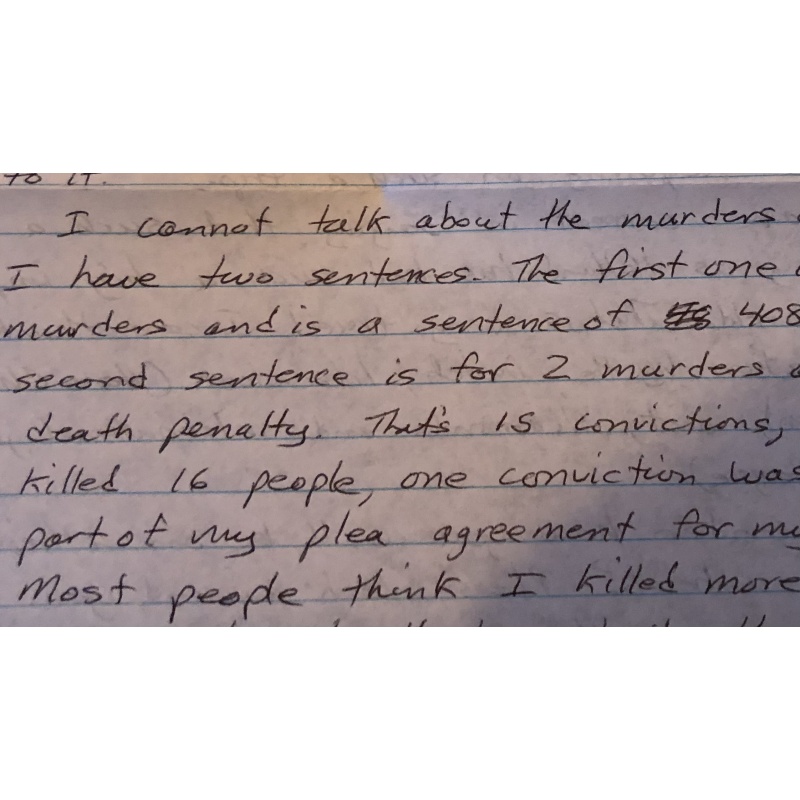 to it.
I cannot talk about the murders
I have two sentences. The first one
murders and is a sentence of 408
second sentence is for 2 murders
death penalty. That's 15 convictions,
killed 16 people, one conviction was
part of my plea agreement for my
Most people think I killed more